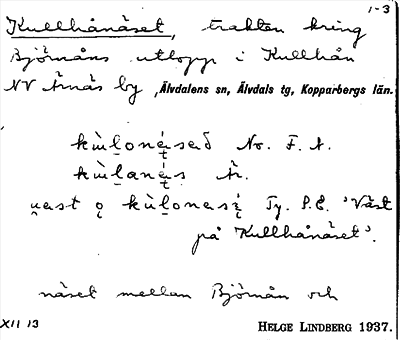 1-3
Kullhånäset, trakten kring
Björnåns utlopp i Kullhån
NV Arnäs by, Älvdalens sn, Älvdals tg, Kopparbergs län.
No. F. A.
Är.
Ty. P.E. 'Väst
på Kullhånäset'.
näset mellan Björnån och
XII 13 HELGE LINDBERG 1937.